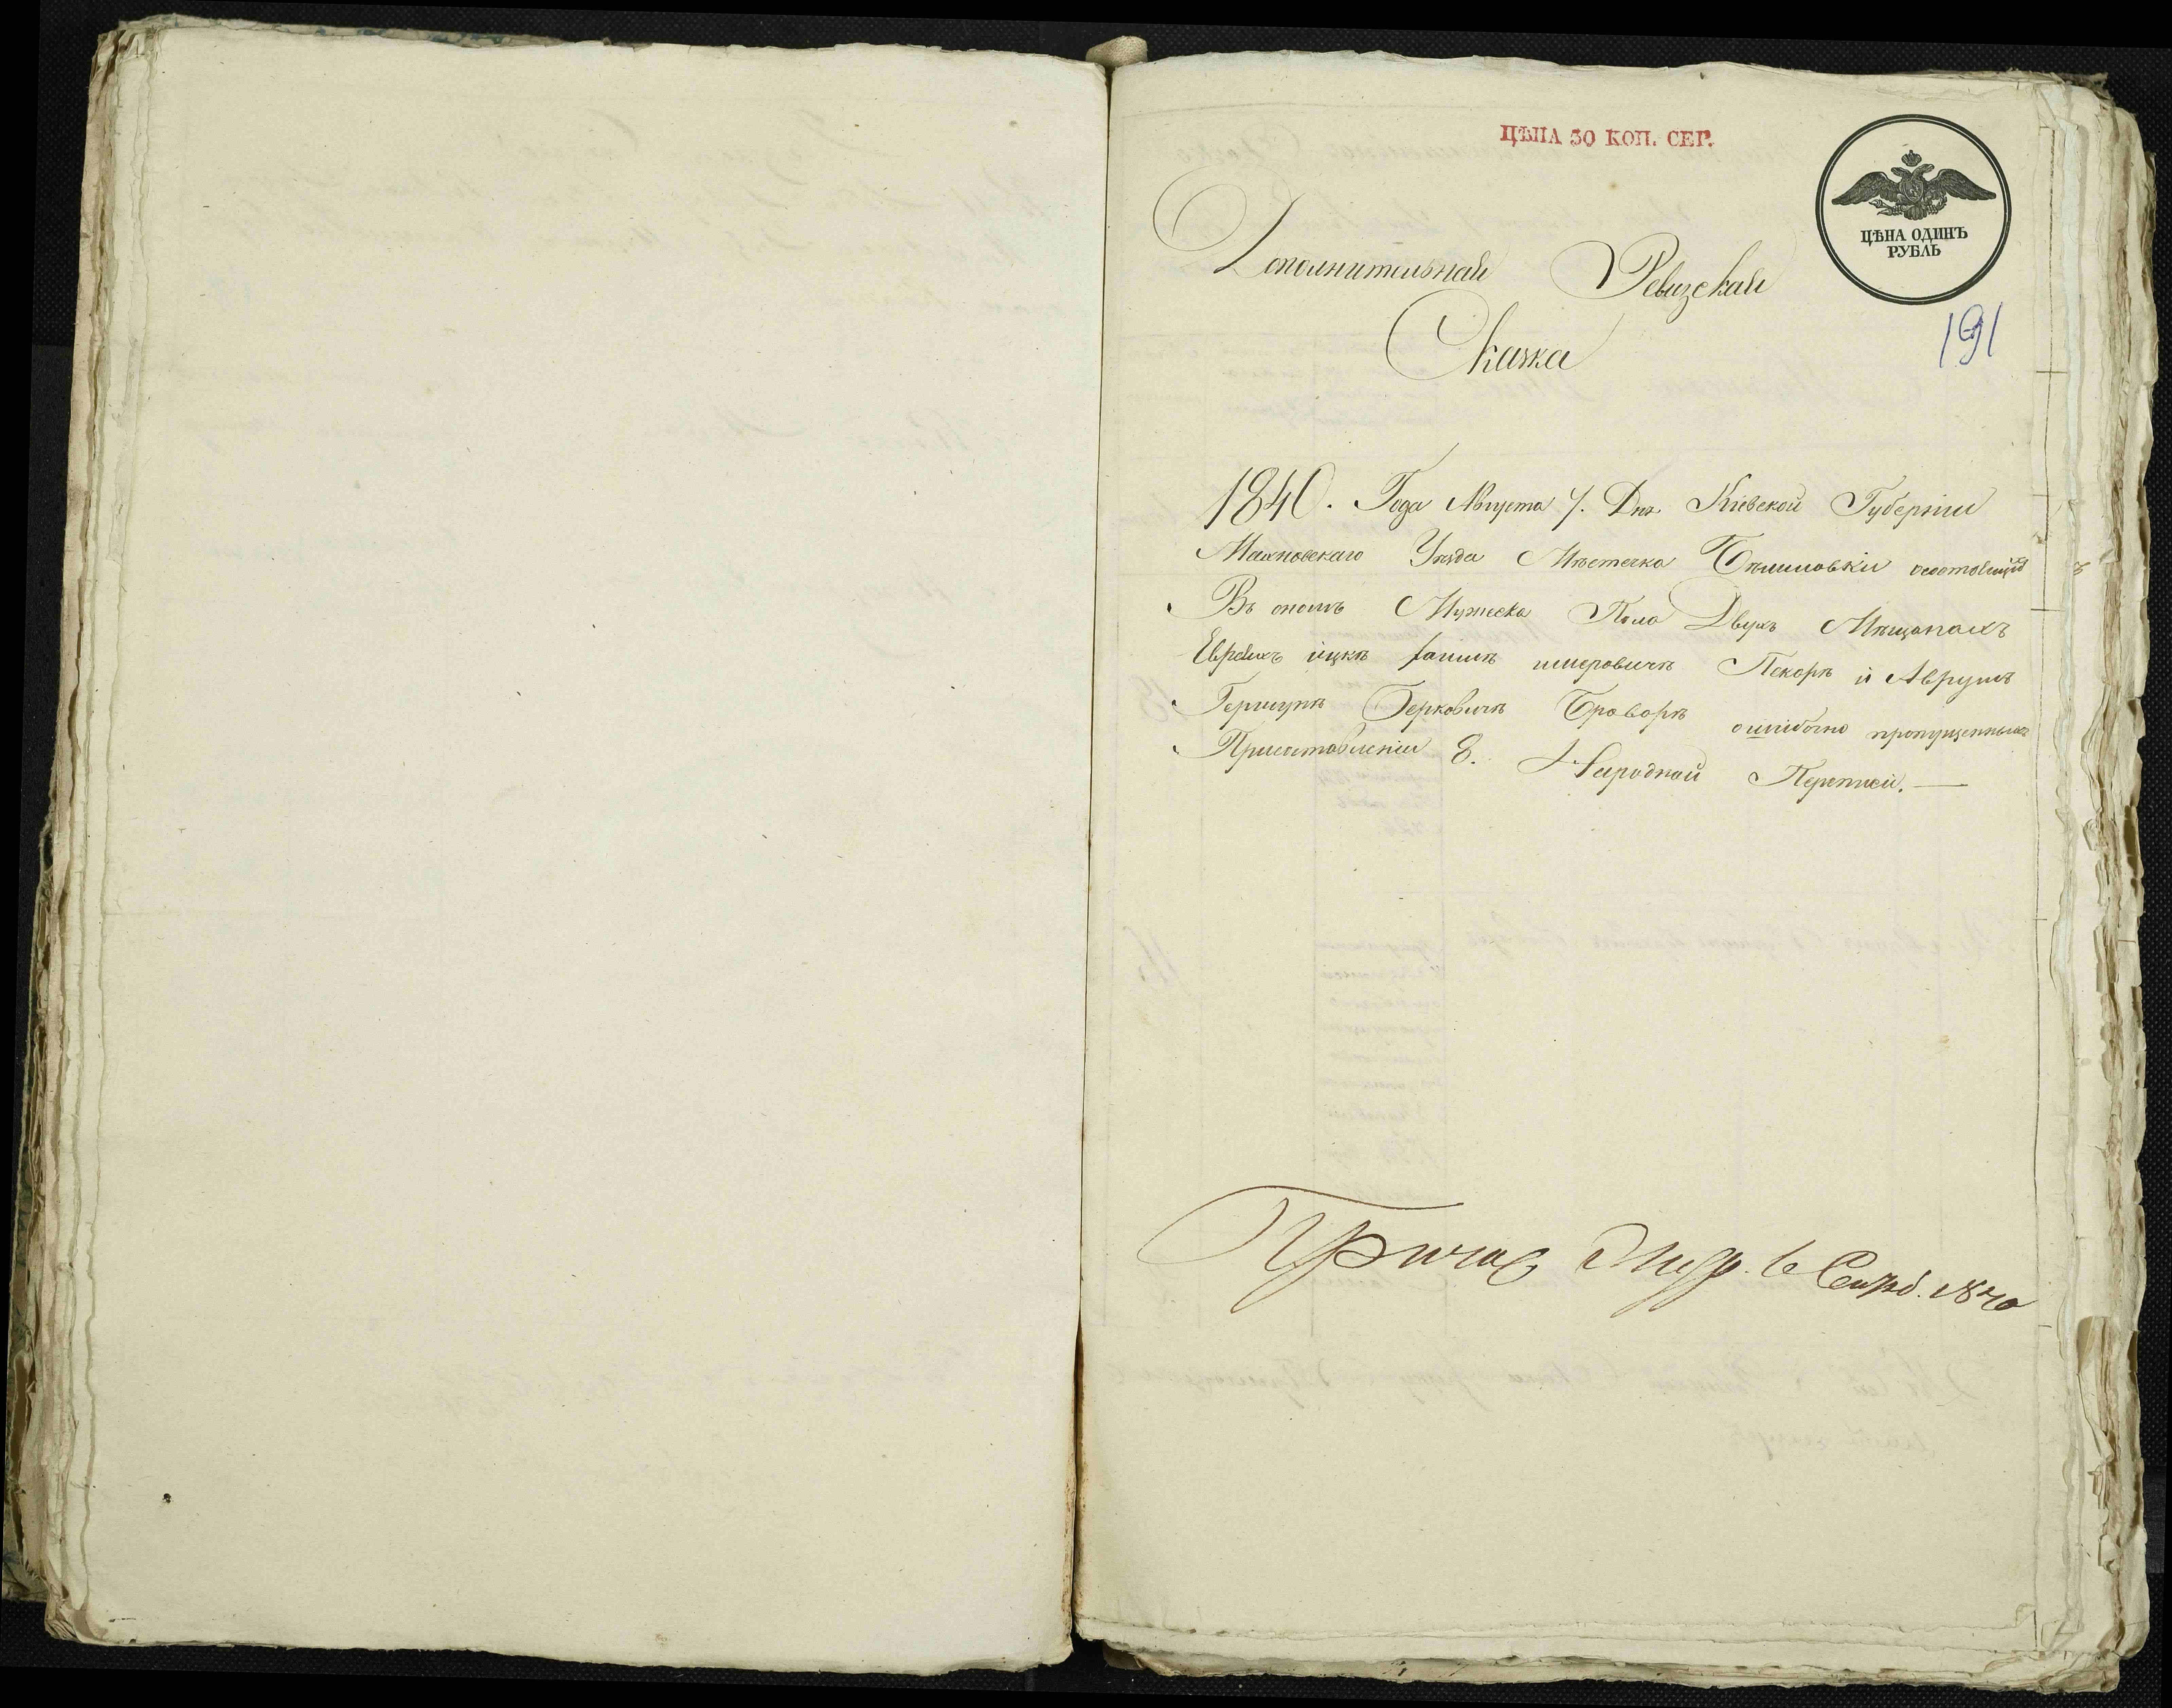 ЦѢНА 30 КОП. СЕР.
ЦѢНА ОДИНЪ
РУБЛЬ
191
Дополнительная Ревизская
Сказка
1840. Года Августа 7. Дня Кіевской Губерніи
Махновскаго Уѣзда Мѣстечка Бѣлиловки
Въ ономъ Мужеска Пола Двухъ Мѣщанахъ
Евреяхъ ицкѣ хаимѣ шмеровичѣ Пекарѣ и Аврумъ
Гершунѣ Берковичѣ Броварѣ ошибочно пропущенныхъ
Присоставленіи 8. Народной Переписи. —
6 Сентяб. 1840